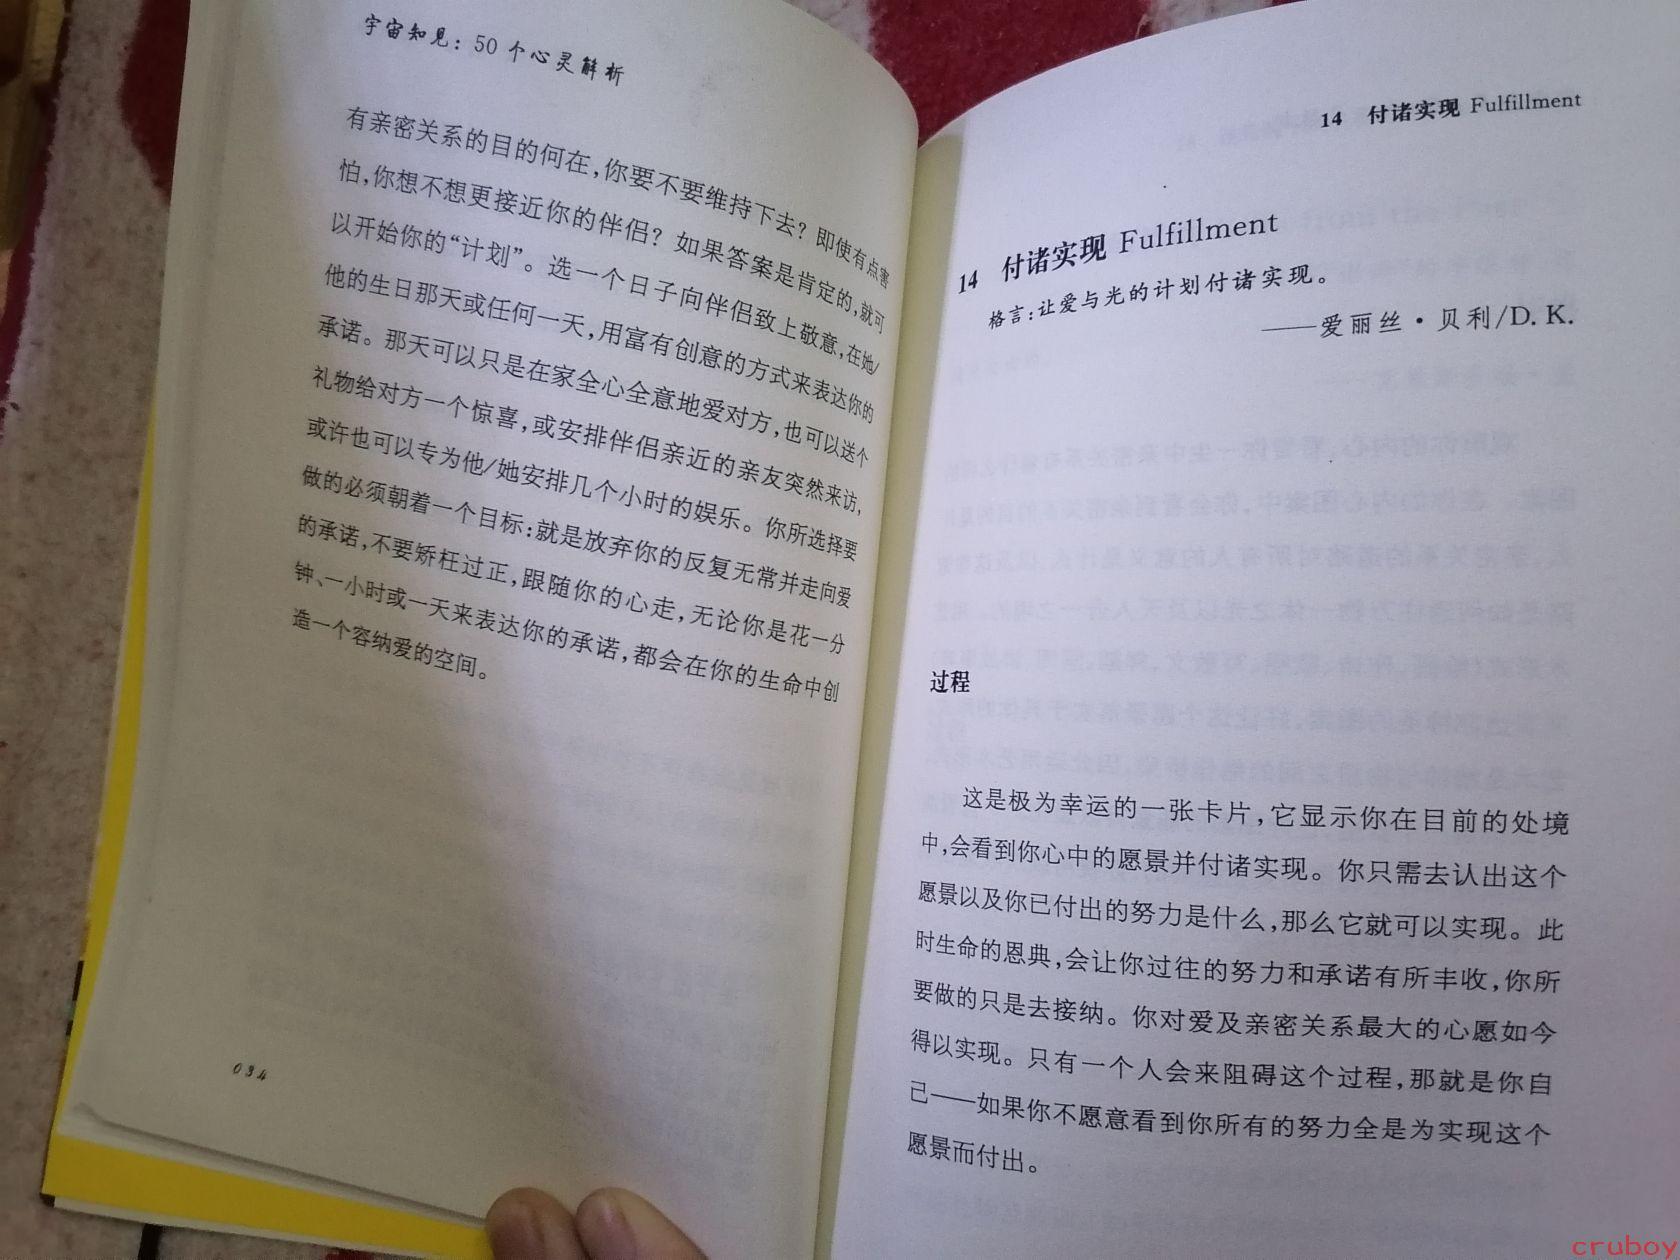 宇宙知见：50个心灵解析
有亲密关系的目的何在，你要不要维持下去？即使有点害
怕，你想不想更接近你的伴侣？如果答案是肯定的，就可
以开始你的“计划”。选一个日子向伴侣致上敬意，在她/
他的生日那天或任何一天，用富有创意的方式来表达你的
承诺。那天可以只是在家全心全意地爱对方，也可以送个
礼物给对方一个惊喜，或安排伴侣亲近的亲友突然来访，
或许也可以专为他/她安排几个小时的娱乐。你所选择要
做的必须朝着一个目标：就是放弃你的反复无常并走向爱
的承诺，不要矫枉过正，跟随你的心走，无论你是花一分
钟、一小时或一天来表达你的承诺，都会在你的生命中创
造一个容纳爱的空间。
034
14 付诸实现 Fulfillment
14 付诸实现 Fulfillment
格言：让爱与光的计划付诸实现。
——爱丽丝·贝利/D. K.
过程
这是极为幸运的一张卡片，它显示你在目前的处境
中，会看到你心中的愿景并付诸实现。你只需去认出这个
愿景以及你已付出的努力是什么，那么它就可以实现。此
时生命的恩典，会让你过往的努力和承诺有所丰收，你所
要做的只是去接纳。你对爱及亲密关系最大的心愿如今
得以实现。只有一个人会来阻碍这个过程，那就是你自
己——如果你不愿意看到你所有的努力全是为实现这个
愿景而付出。
cruboy